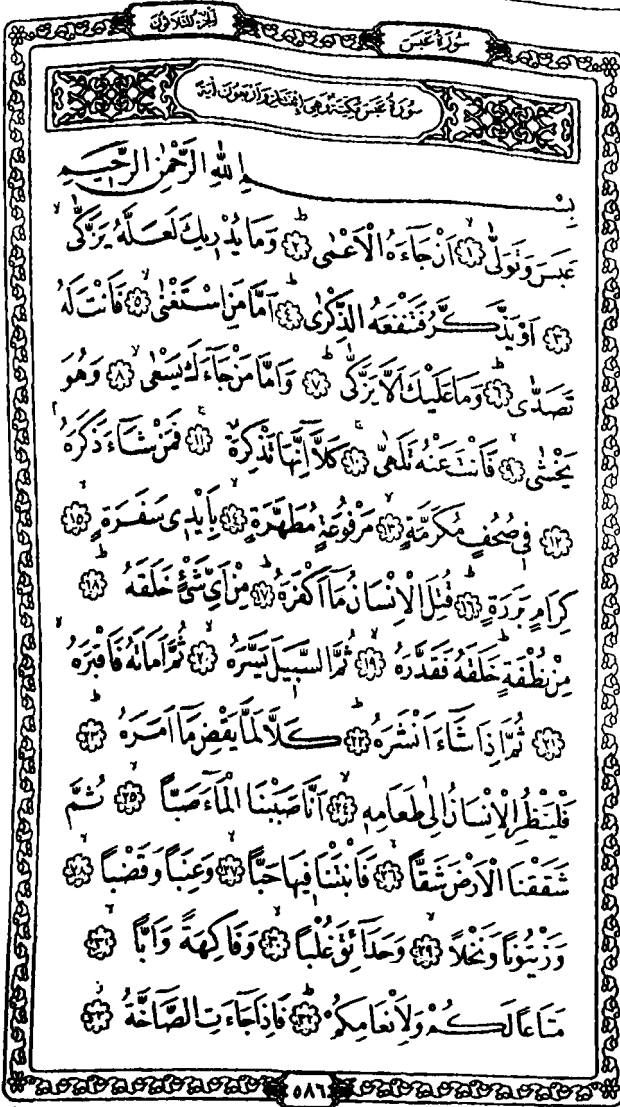 سُورَةُ عَبَسَ
اَلْجُزْءُ الثَّلَاثُونَ
سُورَةُ عَبَسَ مَكِّيَّةٌ وَهِيَ اِثْنَتَانِ وَاَرْبَعُونَ اٰيَةً
بِسْمِ اللهِ الرَّحْمٰنِ الرَّحِيمِ
عَبَسَ وَتَوَلّٰىۙ ﴿١﴾ اَنْ جَاۤءَهُ الْاَعْمٰىۜ ﴿٢﴾ وَمَا يُدْرِيكَ لَعَلَّهُ يَزَّكّٰىۙ
﴿٣﴾ اَوْ يَذَّكَّرُ فَتَنْفَعَهُ الذِّكْرٰىۜ ﴿٤﴾ اَمَّا مَنِ اسْتَغْنٰىۙ ﴿٥﴾ فَاَنْتَ لَهُ
تَصَدّٰىۜ ﴿٦﴾ وَمَا عَلَيْكَ اَلَّا يَزَّكّٰىۜ ﴿٧﴾ وَاَمَّا مَنْ جَاۤءَكَ يَسْعٰىۙ ﴿٨﴾ وَهُوَ
يَخْشٰىۙ ﴿٩﴾ فَاَنْتَ عَنْهُ تَلَهّٰىۚ ﴿١٠﴾ كَلَّاۤ اِنَّهَا تَذْكِرَةٌۚ ﴿١١﴾ فَمَنْ شَاۤءَ ذَكَرَهُۢ
﴿١٢﴾ فِي صُحُفٍ مُكَرَّمَةٍۙ ﴿١٣﴾ مَرْفُوعَةٍ مُطَهَّرَةٍۙ ﴿١٤﴾ بِاَيْدِي سَفَرَةٍۙ ﴿١٥﴾
كِرَامٍ بَرَرَةٍۜ ﴿١٦﴾ قُتِلَ الْاِنْسَانُ مَاۤ اَكْفَرَهُۜ ﴿١٧﴾ مِنْ اَيِّ شَيْءٍ خَلَقَهُۜ ﴿١٨﴾
مِنْ نُطْفَةٍۜ خَلَقَهُ فَقَدَّرَهُۙ ﴿١٩﴾ ثُمَّ السَّبِيلَ يَسَّرَهُۙ ﴿٢٠﴾ ثُمَّ اَمَاتَهُ فَاَقْبَرَهُۙ
﴿٢١﴾ ثُمَّ اِذَا شَاۤءَ اَنْشَرَهُۜ ﴿٢٢﴾ كَلَّا لَمَّا يَقْضِ مَاۤ اَمَرَهُۜ ﴿٢٣﴾
فَلْيَنْظُرِ الْاِنْسَانُ اِلٰى طَعَامِهِۙ ﴿٢٤﴾ اَنَّا صَبَبْنَا الْمَاۤءَ صَبًّاۙ ﴿٢٥﴾ ثُمَّ
شَقَقْنَا الْاَرْضَ شَقًّاۙ ﴿٢٦﴾ فَاَنْبَتْنَا فِيهَا حَبًّاۙ ﴿٢٧﴾ وَعِنَبًا وَقَضْبًاۙ ﴿٢٨﴾
وَزَيْتُونًا وَنَخْلًاۙ ﴿٢٩﴾ وَحَدَاۤئِقَ غُلْبًاۙ ﴿٣٠﴾ وَفَاكِهَةً وَاَبًّاۙ ﴿٣١﴾
مَتَاعًا لَكُمْ وَلِاَنْعَامِكُمْۜ ﴿٣٢﴾ فَاِذَا جَاۤءَتِ الصَّاۤخَّةُۘ ﴿٣٣﴾
٥٨٦